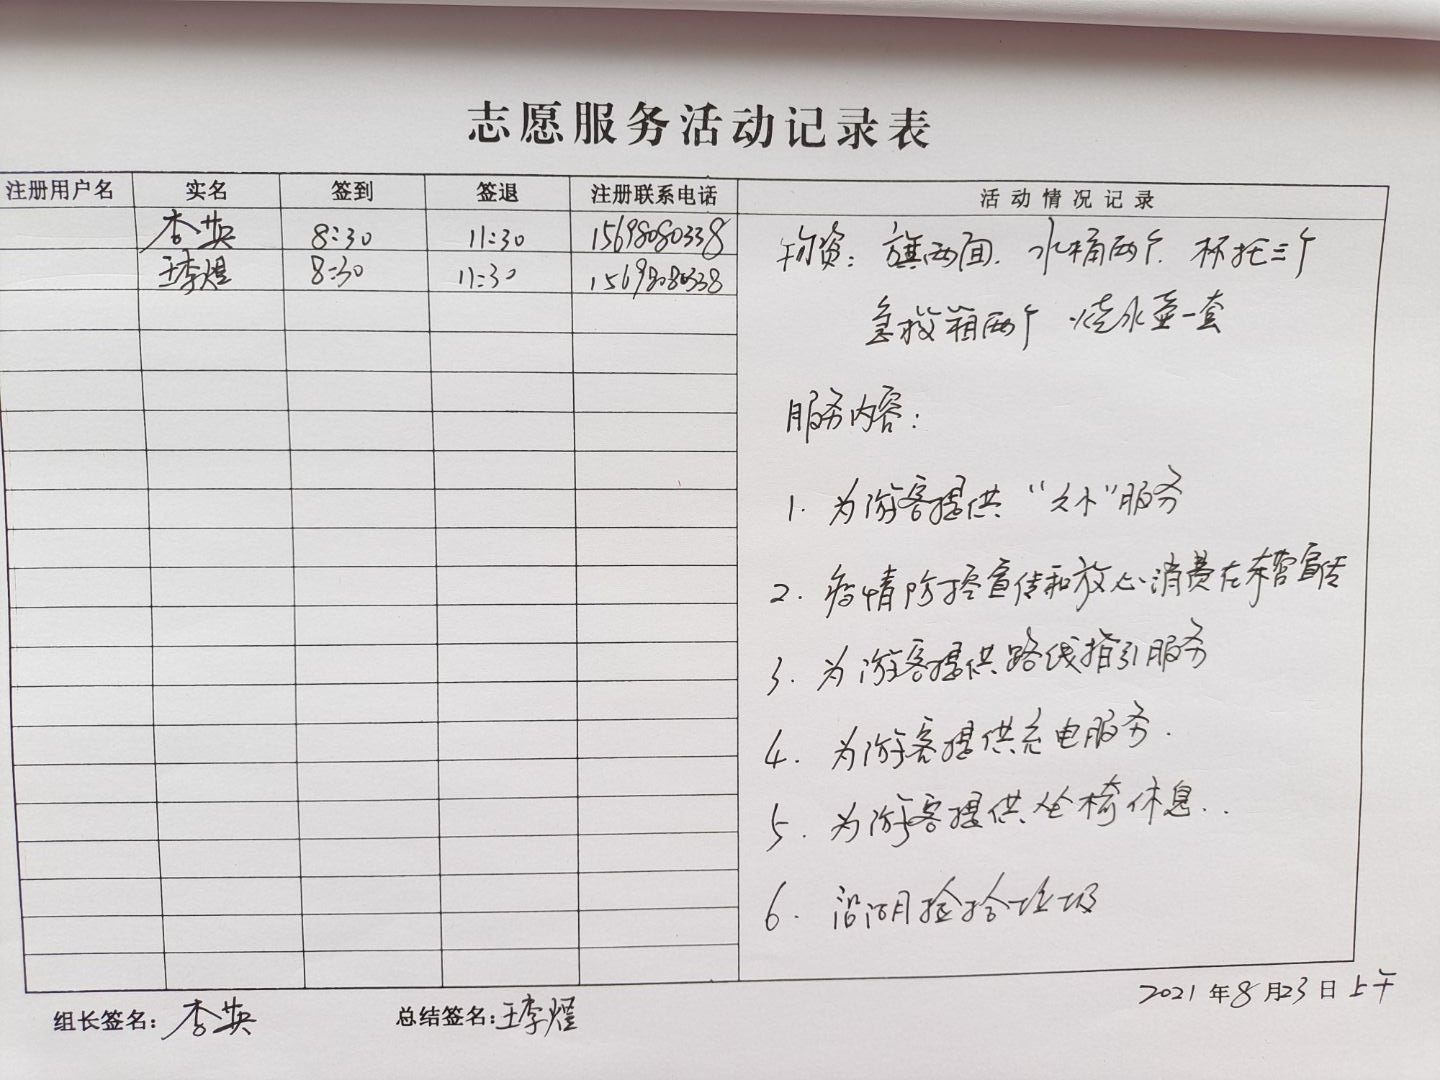 志愿服务活动记录表
注册用户名 实名 签到 签退 注册联系电话 活动情况记录
李英 8:30 11:30 15698080338
王李煜 8:30 11:30 15698080338
物资：旗两面. 水桶两个. 杯托三个
急救箱两个 烧水壶一套
服务内容：
1. 为游客提供“ ”服务
2. 疫情防控宣传和放心消费在东营宣传
3. 为游客提供路线指引服务
4. 为游客提供充电服务.
5. 为游客提供坐椅休息..
6. 沿湖捡拾垃圾
2021年8月23日上午
组长签名：李英 总结签名：王李煜